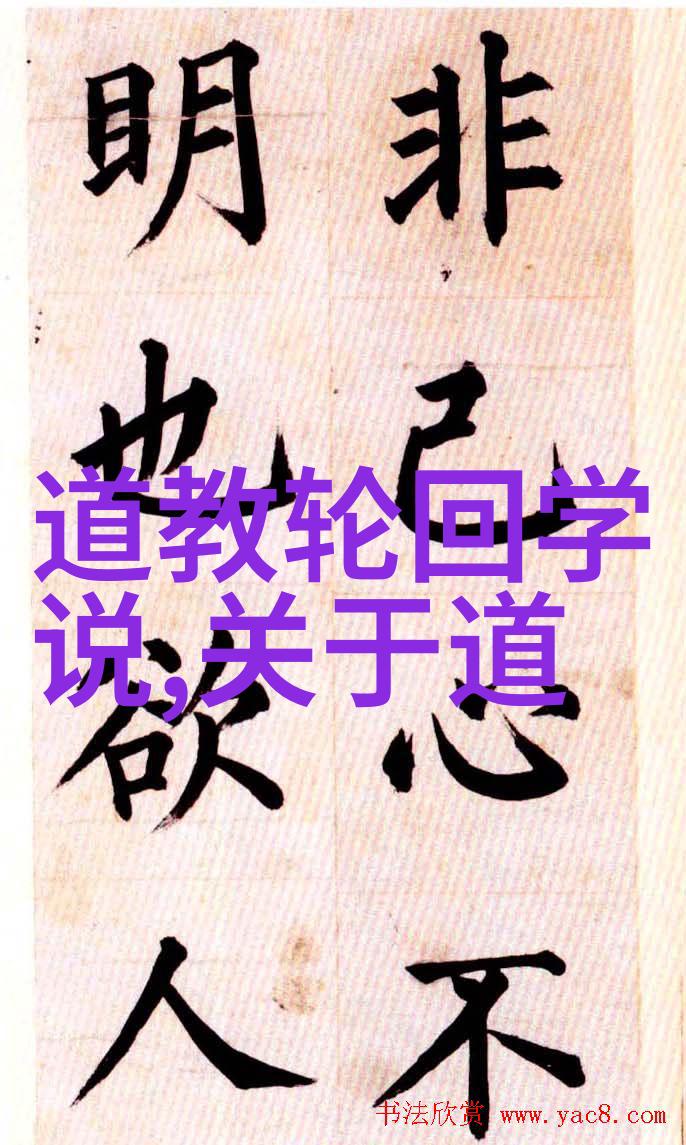 非己心不
眀也欲人
道教轮回学
说,关于道
书法欣赏 www.yac8.com